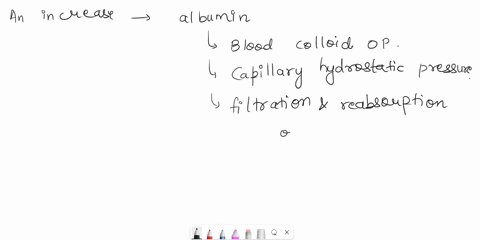 An increase → albumin
↳ Blood colloid OP.
↳ Capillary hydrostatic pressure
↳ filtration & reabsorption